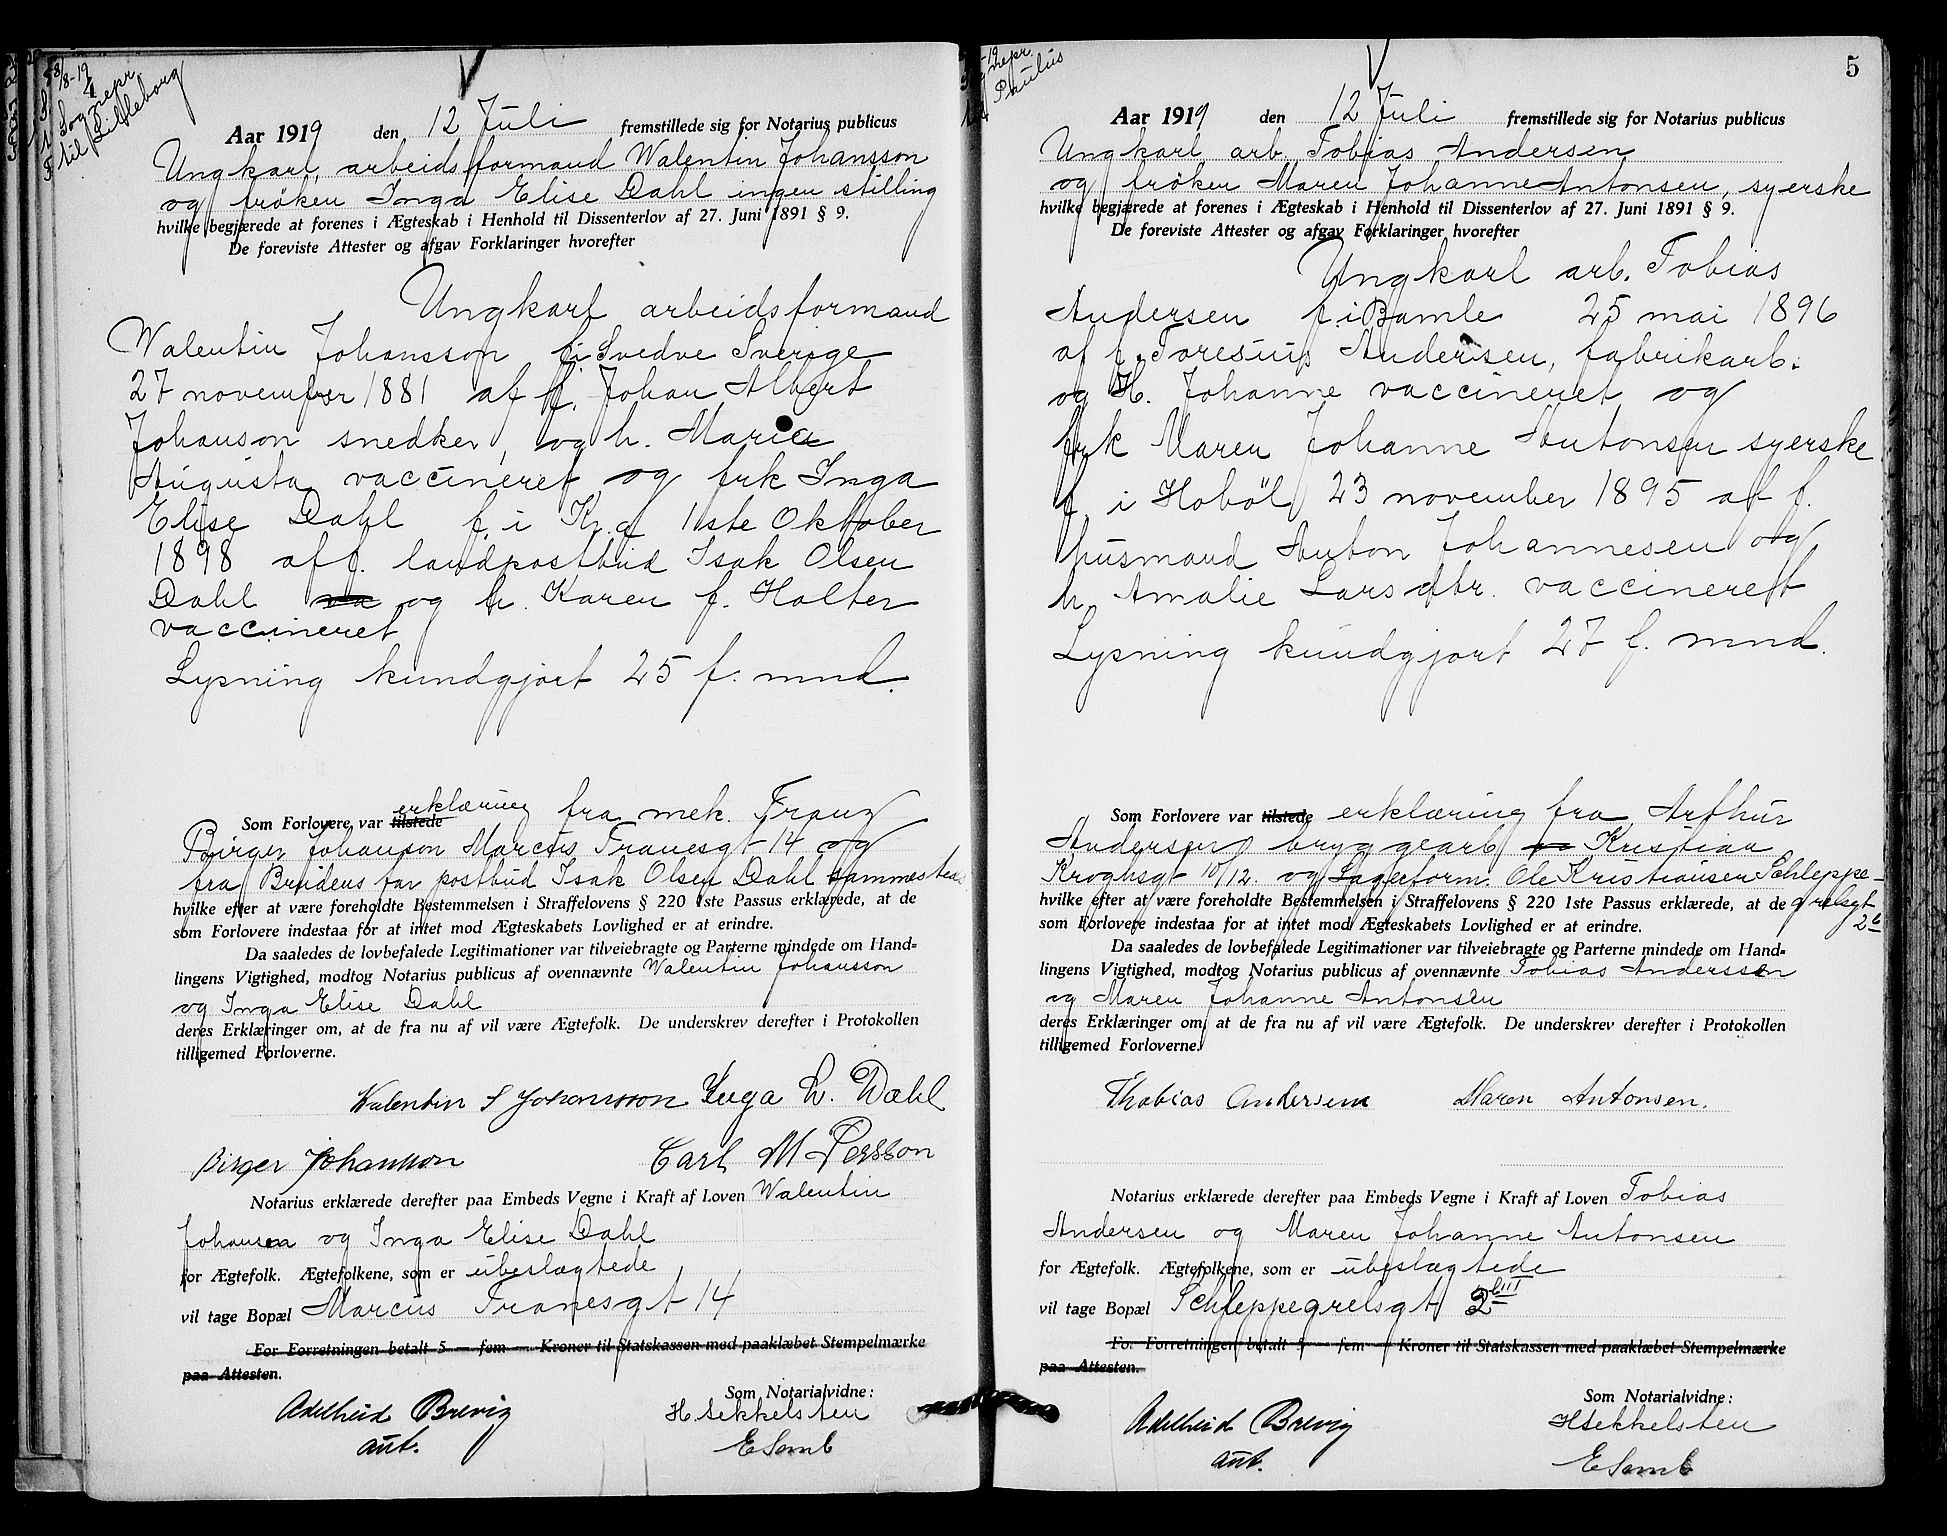 8/8-19
Sognepr
til Lilleborg
Aar 1919 den 12 Juli fremstillede sig for Notarius publicus
Ungkarl, arbeidsformand Walentin Johansson
og frøken Inga Elise Dahl ingen stilling
hvilke begjærede at forenes i Ægteskab i Henhold til Dissenterlov af 27. Juni 1891 § 9.
De foreviste Attester og afgav Forklaringer hvorefter
Ungkarl arbeidsformand
Walentin Johansson f. i Svedve Sverige
27 november 1881 af f. Johan Albert
Johanson snedker, og h. Maria
Augusta vaccineret og frk Inga
Elise Dahl f. i Kr.a 1ste Oktober
1898 af f. landpostbud Isak Olsen
Dahl va og h. Karen f. Holter
vaccineret
Lysning kundgjort 25 f. mnd.
Som Forlovere var tilstede erklæring fra mek. Franz
Birger Johanson Marcus Tranesgt 14 og
fra Brudens far postbud Isak Olsen Dahl sammested
hvilke efter at være foreholdte Bestemmelsen i Straffelovens § 220 1ste Passus erklærede, at de
som Forlovere indestaa for at intet mod Ægteskabets Lovlighed er at erindre.
Da saaledes de lovbefalede Legitimationer var tilveiebragte og Parterne mindede om Hand-
lingens Vigtighed, modtog Notarius publicus af ovennævnte Walentin Johansson
og Inga Elise Dahl
deres Erklæringer om, at de fra nu af vil være Ægtefolk. De underskrev derefter i Protokollen
tilligemed Forloverne.
Walentin S Johansson Inga L. Dahl
Birger Johansson Carl M Persson
Notarius erklærede derefter paa Embeds Vegne i Kraft af Loven Walentin
Johansen og Inga Elise Dahl
for Ægtefolk. Ægtefolkene, som er ubeslægtede
vil tage Bopæl Marcus Tranesgt 14
For Forretningen betalt 5 — fem — Kroner til Statskassen med paaklæbet Stempelmærke
paa Attesten.
Som Notarialvidne:
Adelheid Brevig H Sekkelsten
aut. E Samb
5
-19
Sognepr.
Paulus
Aar 1919 den 12 Juli fremstillede sig for Notarius publicus
Ungkarl arb. Tobias Andersen
og frøken Maren Johanne Antonsen, syerske
hvilke begjærede at forenes i Ægteskab i Henhold til Dissenterlov af 27. Juni 1891 § 9.
De foreviste Attester og afgav Forklaringer hvorefter
Ungkarl arb. Tobias
Andersen f. i Bamle 25 mai 1896
af f. Toresius Andersen, fabrikarb.
og H. Johanne vaccineret og
frk Maren Johanne Antonsen syerske
f. i Hobøl 23 november 1895 af f.
husmand Anton Johannesen og
h. Amalie Larsdtr. vaccineret
Lysning kundgjort 27 f. mnd.
Som Forlovere var tilstede erklæring fra Arthur
Andersen bryggearb Kristian
Kroghsgt 10/12. og Lagerform. Ole Kristiansen Schleppe-
hvilke efter at være foreholdte Bestemmelsen i Straffelovens § 220 1ste Passus erklærede, at de grelsgt
som Forlovere indestaa for at intet mod Ægteskabets Lovlighed er at erindre. 2b
Da saaledes de lovbefalede Legitimationer var tilveiebragte og Parterne mindede om Hand-
lingens Vigtighed, modtog Notarius publicus af ovennævnte Tobias Anderssen
og Maren Johanne Antonsen
deres Erklæringer om, at de fra nu af vil være Ægtefolk. De underskrev derefter i Protokollen
tilligemed Forloverne.
Thobias Andersen Maren Antonsen.
Notarius erklærede derefter paa Embeds Vegne i Kraft af Loven Tobias
Andersen og Maren Johanne Antonsen
for Ægtefolk. Ægtefolkene, som er ubeslægtede
vil tage Bopæl Schleppegrelsgt 2 b III
For Forretningen betalt 5 — fem — Kroner til Statskassen med paaklæbet Stempelmærke
paa Attesten.
Som Notarialvidne:
Adelheid Brevig HSekkelsten
aut. E Samb